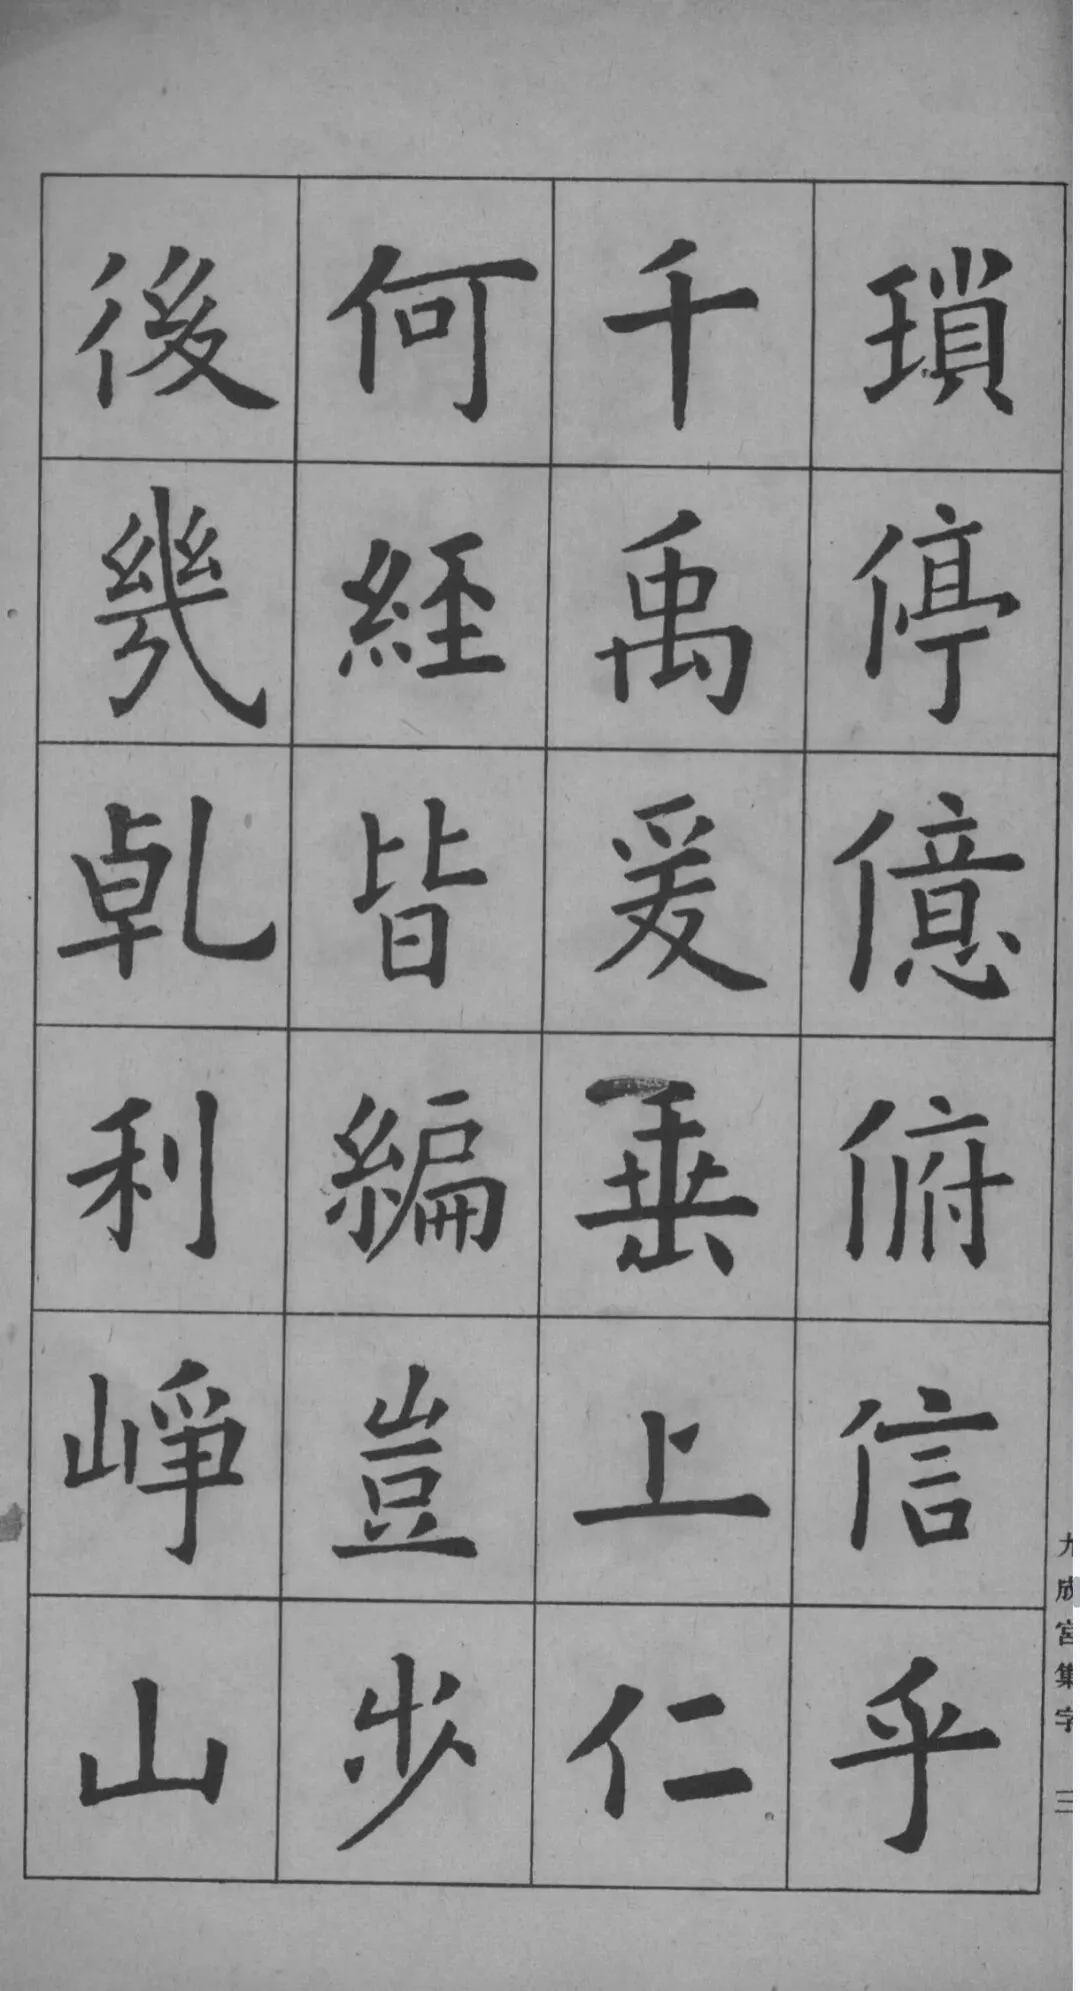 瑣停億俯信乎
千禹爰垂上仁
何經皆編豈步
後幾乹利崢山
九成宮集字 三